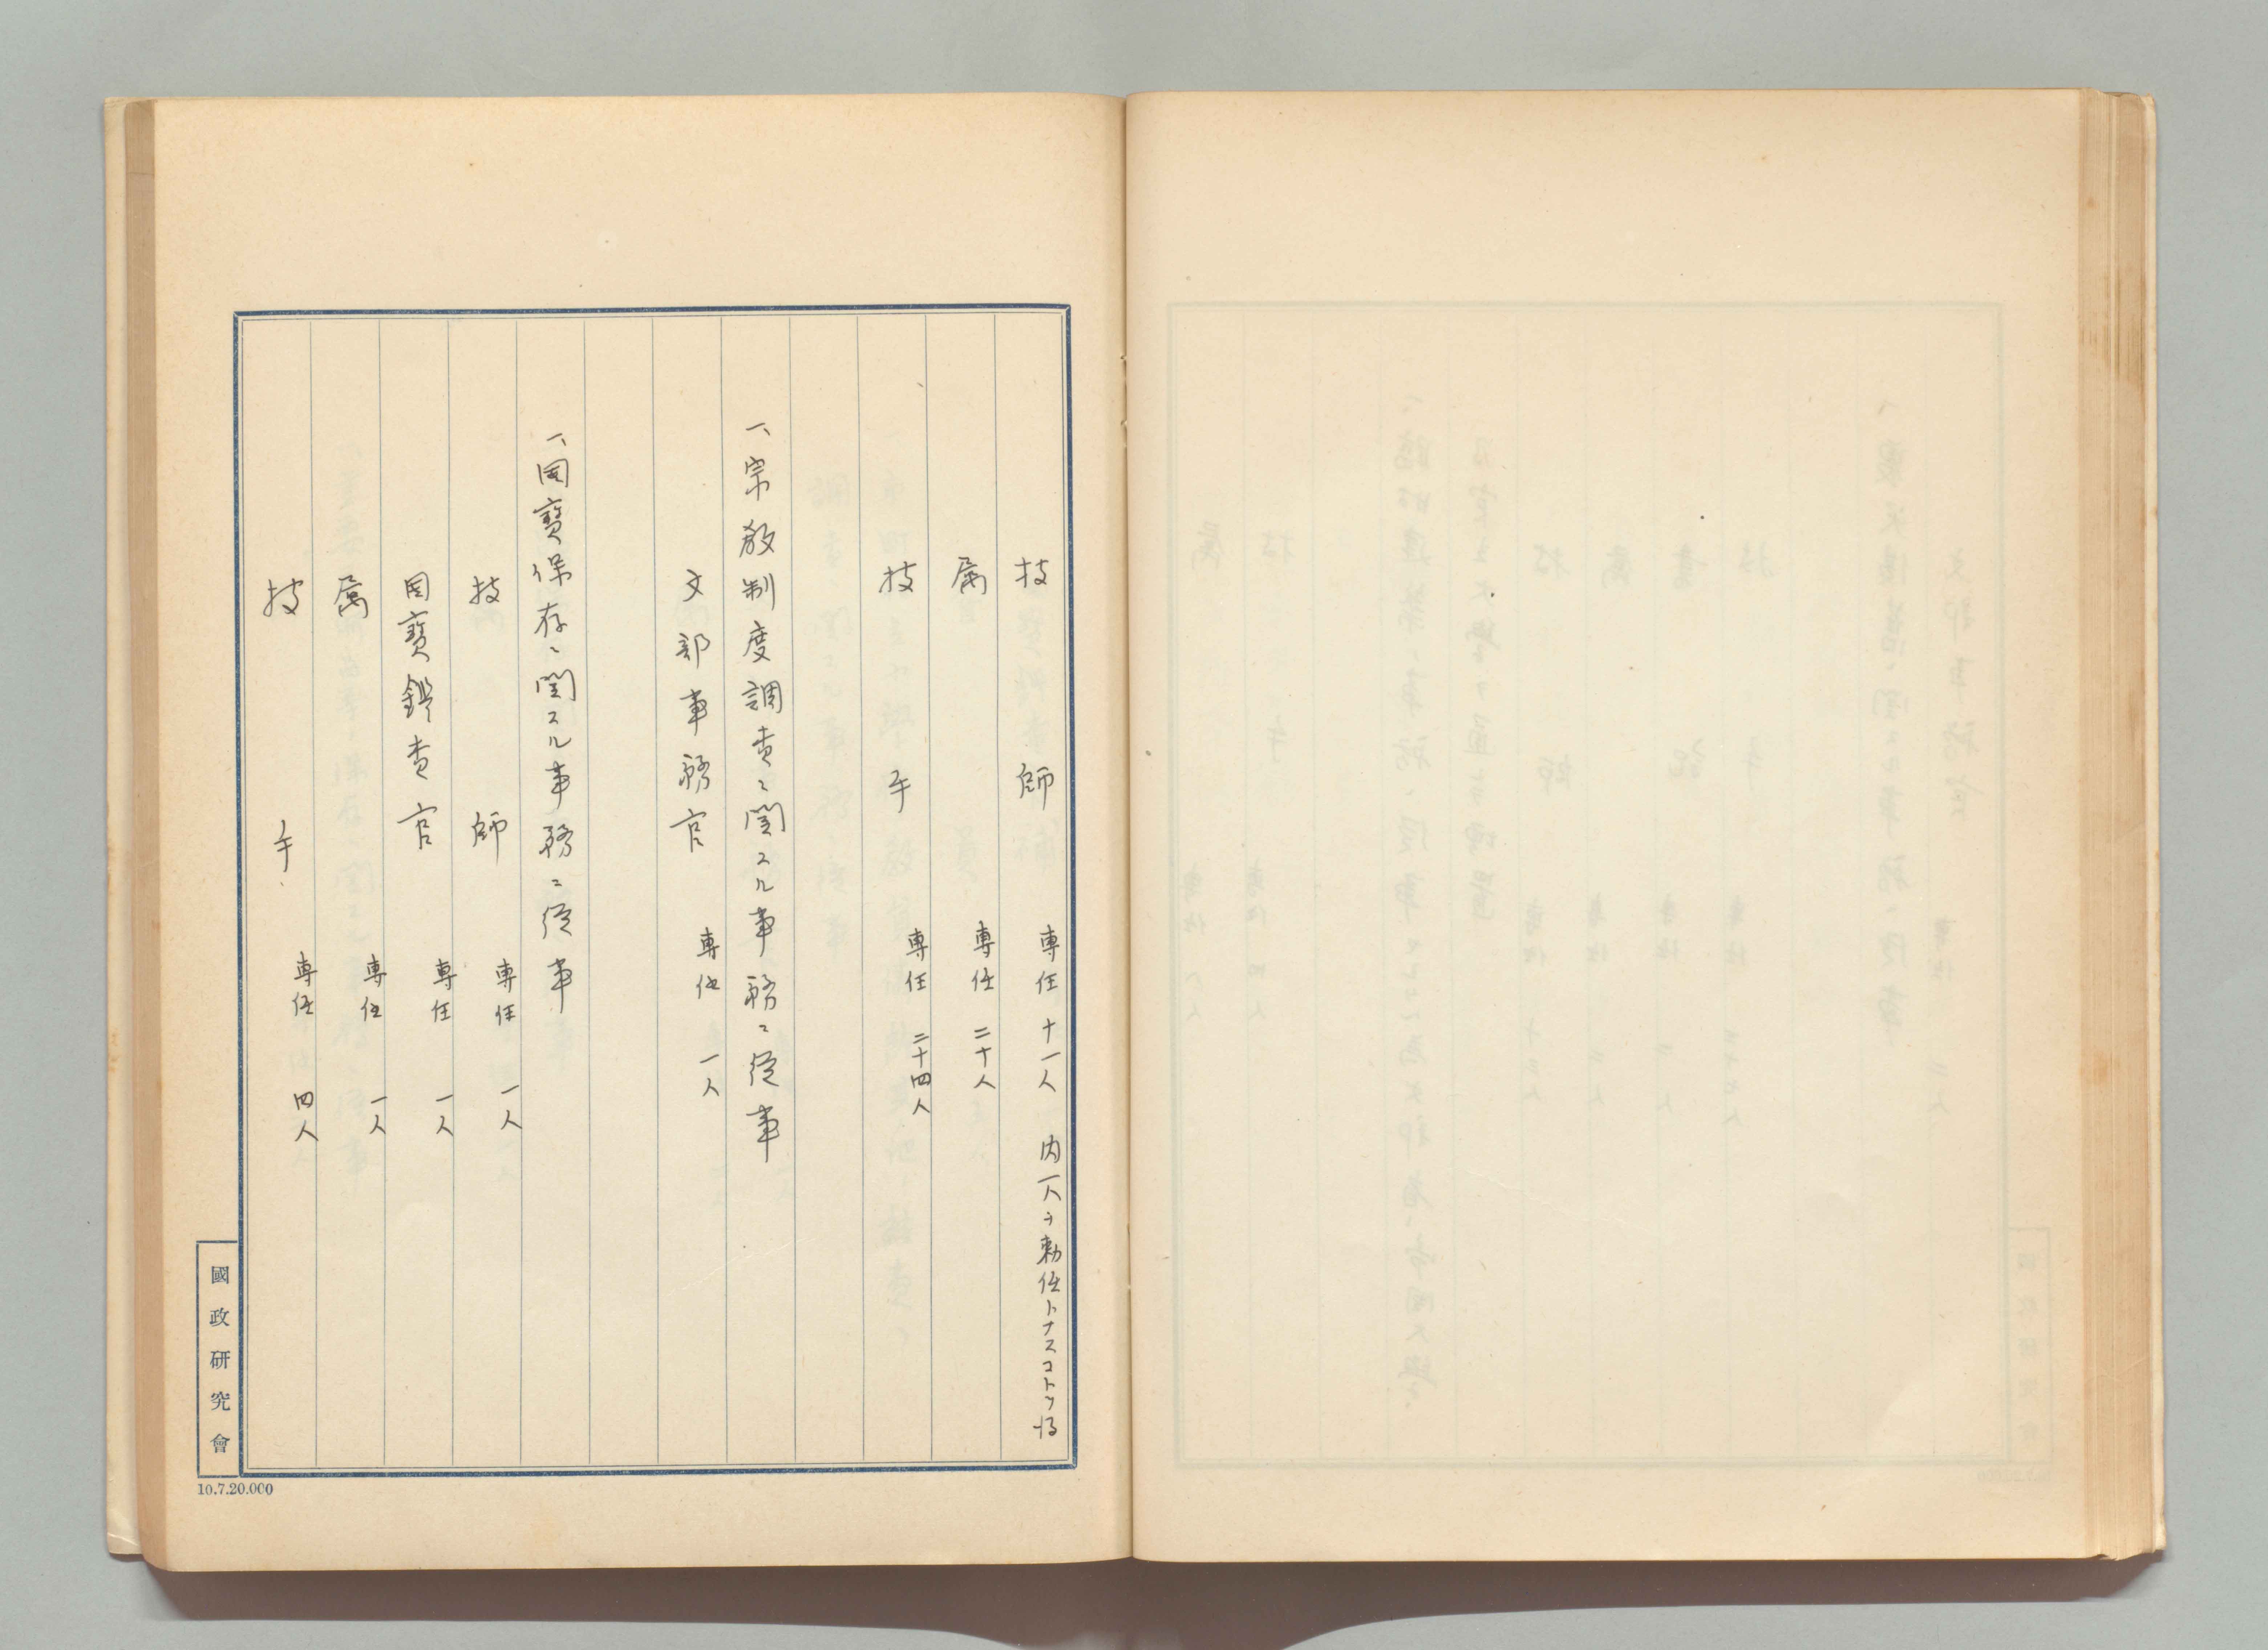 技師 専任 十一人 内一人ヲ勅任トナスコトヲ得
属 専任 二十人
技手 専任 二十四人
一、宗教制度調査ニ関スル事務ニ従事
文部事務官 専任 一人
一、国寳保存ニ関スル事務ニ従事
技師 専任 一人
国寳鑑査官 専任 一人
属 専任 一人
技手 専任 四人
國政研究會
10.7.20.000